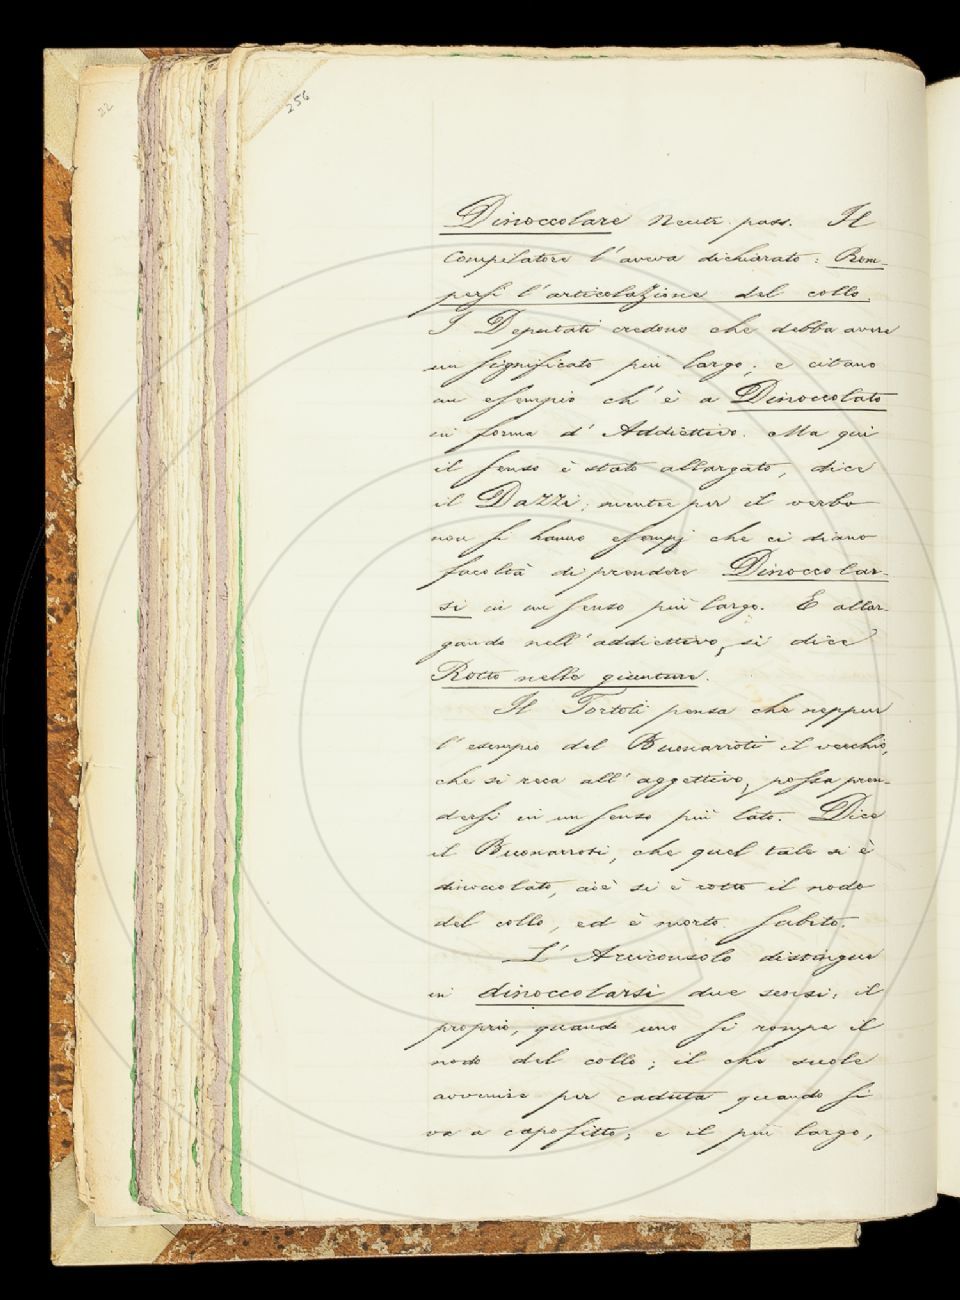 22
256
Dinoccolare Neutr. pass. Il
Compilatore l'aveva dichiarato: Rom-
persi l'articolazione del collo.
I Deputati credono che debba avere
un significato più largo; e citano
un esempio ch'è a Dinoccolato
in forma d'Addiettivo. Ma qui
il senso è stato allargato, dice
il Dazzi; mentre per il verbo
non si hanno esempj che ci diano
facoltà di prendere Dinoccolar-
si in un senso più largo. E allar-
gando nell'addiettivo, si dice
Rotto nelle giunture.
Il Tortoli pensa che neppur
l'esempio del Buonarroti il vecchio,
che si reca all'aggettivo, possa pren-
dersi in un senso più lato. Dice
il Buonarroti, che quel tale si è
dinoccolato, cioè si è rotto il nodo
del collo, ed è morto subito.
L'Arciconsolo distingue
in dinoccolarsi due sensi: il
proprio, quando uno si rompe il
nodo del collo; il che suole
avvenire per caduta quando si
va a capofitto; e il più largo,